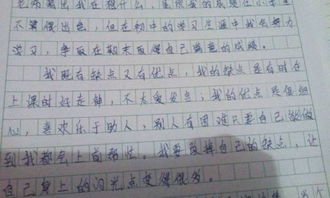 老师看出我在想什么，虽然我的成绩在小学里
不算很出色，但在初中的学习生涯中我会努力
学习，争取在期末取得自己满意的成绩。
我既有缺点又有优点，我的缺点是有时在
上课时好走神，不太爱发言；我的优点是很细
心，喜欢乐于助人，别人有困难只要自己能做
到我都会上前帮忙。我要改掉自己的缺点，让
自己身上的闪光点变得很多。